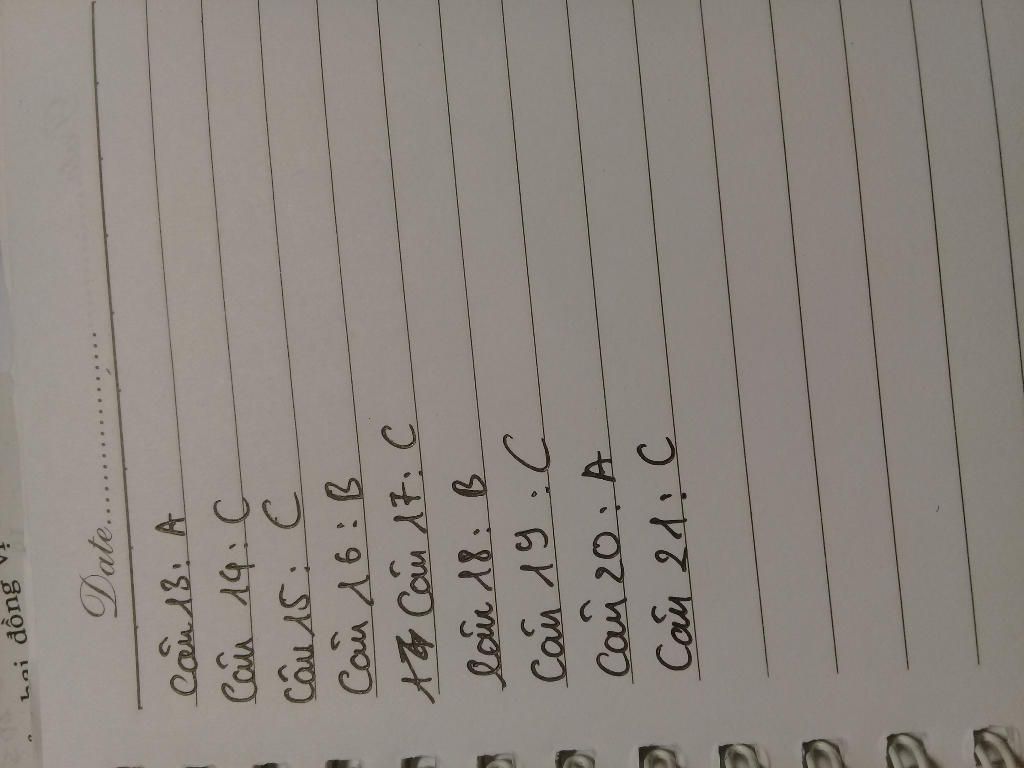 Date
Câu 13: A
Câu 14: C
Câu 15: C
Câu 16: B
Câu 17: C
Câu 18: B
Câu 19: C
Câu 20: A
Câu 21: C
hai đồng vị